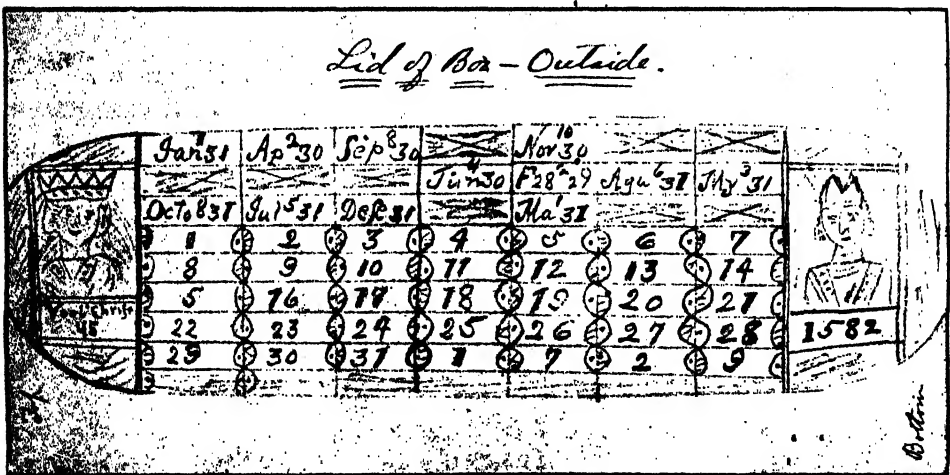 Lid of Box - Outside.
Jan 1 31 Ap 2 30 Sep 8 30 Nov 10 30
Jun 4 30 F 28 29 Agu 6 31 My 3 31
Octo 8 31 Jul 5 31 Dec 31 Ma 1 31
1 2 3 4 5 6 7
8 9 10 11 12 13 14
5 16 17 18 19 20 21
22 23 24 25 26 27 28
29 30 31 1 7 2 9
45
1582
Bottom